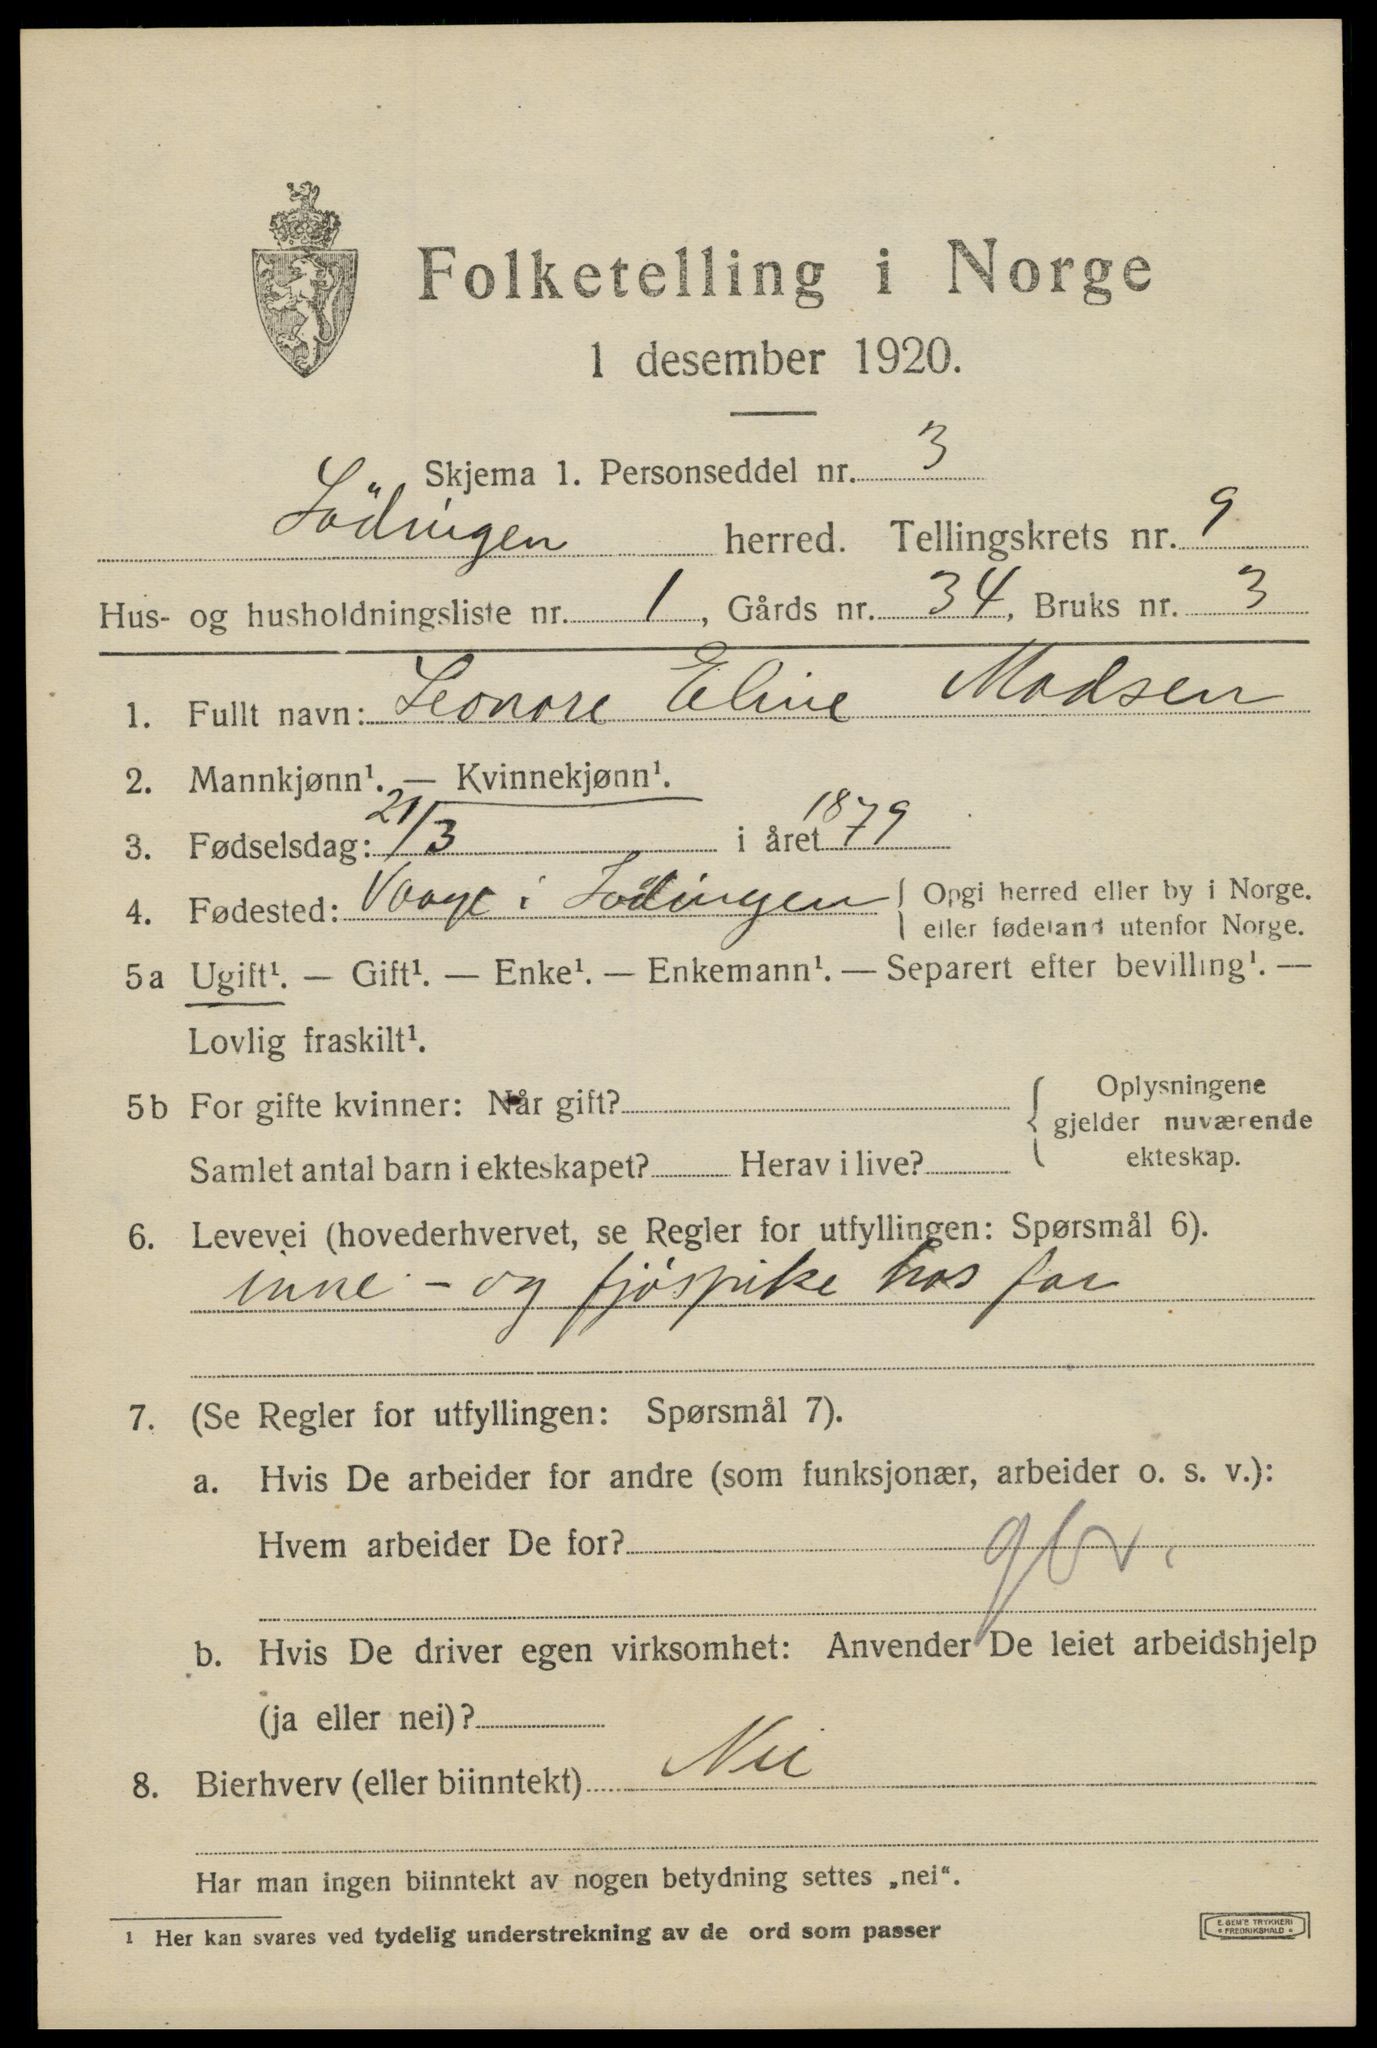 Folketelling i Norge
1 desember 1920.
Skjema 1. Personseddel nr. 3
Lödingen herred. Tellingskrets nr. 9
Hus- og husholdningsliste nr. 1, Gårds nr. 34, Bruks nr. 3
1. Fullt navn: Leonore Eline Madsen
2. Mannkjønn¹. — Kvinnekjønn¹.
3. Fødselsdag: 21/3 i året 1879
4. Fødested: Vaage i Lödingen { Opgi herred eller by i Norge.
eller fødeland utenfor Norge.
5a Ugift¹. — Gift¹. — Enke¹. — Enkemann¹. — Separert efter bevilling¹. —
Lovlig fraskilt¹.
5b For gifte kvinner: Når gift?
Samlet antal barn i ekteskapet? Herav i live?
{ Oplysningene
gjelder nuværende
ekteskap.
6. Levevei (hovederhvervet, se Regler for utfyllingen: Spørsmål 6).
inne - og fjöspike hos far
7. (Se Regler for utfyllingen: Spørsmål 7).
a. Hvis De arbeider for andre (som funksjonær, arbeider o. s. v.):
Hvem arbeider De for?
b. Hvis De driver egen virksomhet: Anvender De leiet arbeidshjelp
(ja eller nei)?
8. Bierhverv (eller biinntekt) Nei
Har man ingen biinntekt av nogen betydning settes „nei“.
¹ Her kan svares ved tydelig understrekning av de ord som passer
E. SEM'S TRYKKERI
• FREDRIKSHALD •